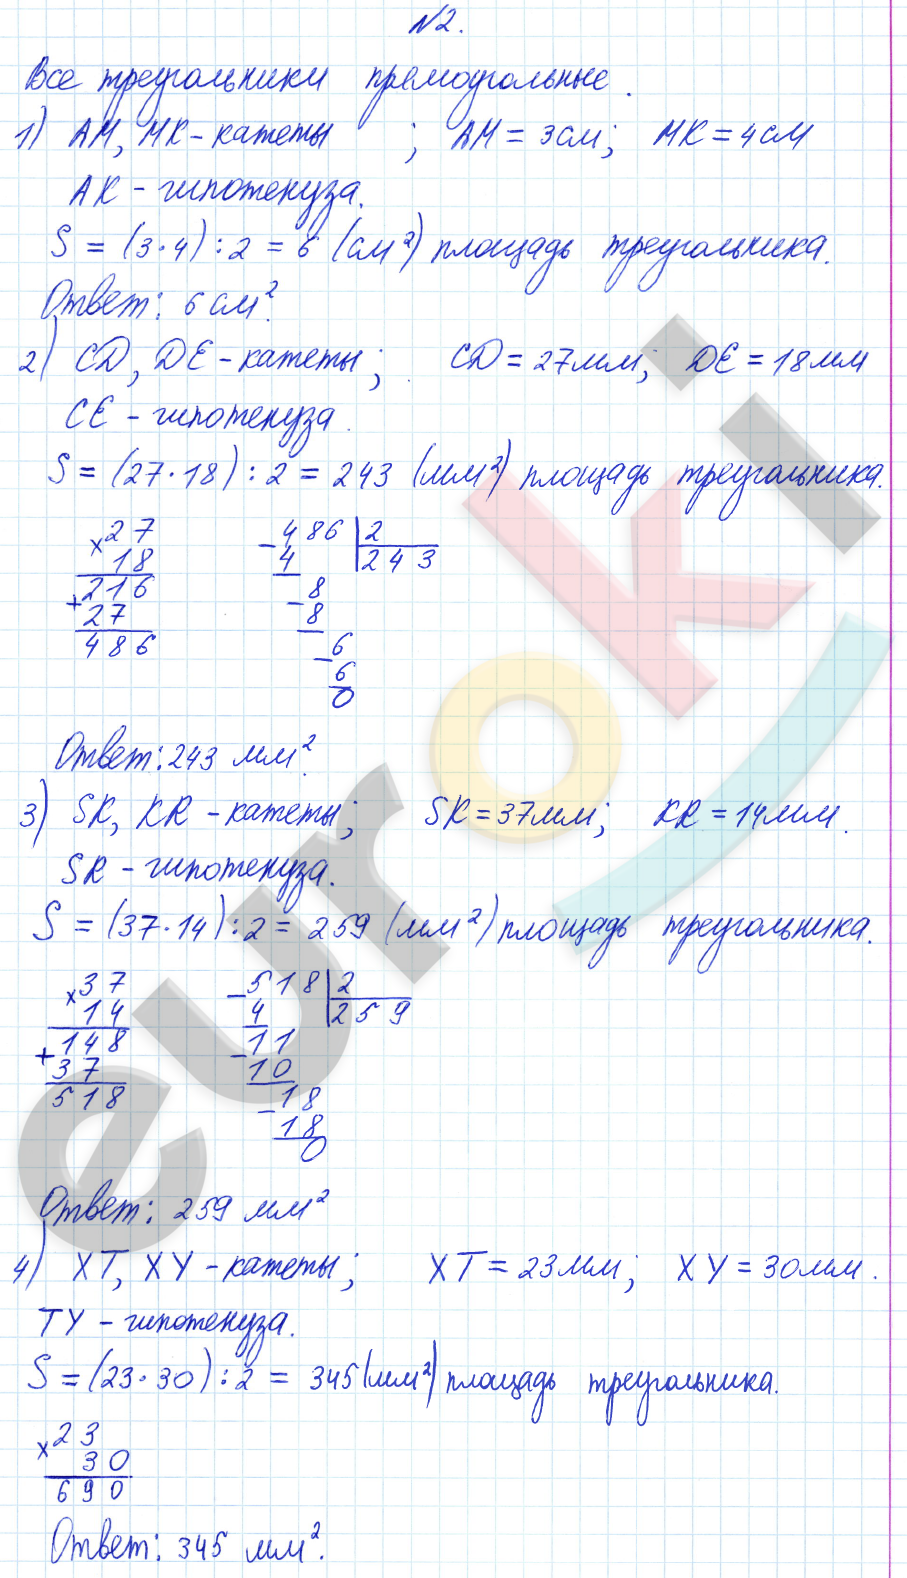 №2.
Все треугольники прямоугольные.
1) АМ, МК - катеты ; АМ = 3 см; МК = 4 см
АК - гипотенуза.
S = (3·4) : 2 = 6 (см²) площадь треугольника.
Ответ: 6 см².
2) CD, DE - катеты; CD = 27 мм; DE = 18 мм
CE - гипотенуза.
S = (27·18) : 2 = 243 (мм²) площадь треугольника.
×27 -486 | 2
18 4 243
216 -8
+27 8
486 -6
6
0
Ответ: 243 мм².
3) SK, KR - катеты; SK = 37 мм; KR = 14 мм.
SR - гипотенуза.
S = (37·14) : 2 = 259 (мм²) площадь треугольника.
×37 -518 | 2
14 4 259
148 -11
+37 10
518 -18
18
0
Ответ: 259 мм²
4) XT, XY - катеты; XT = 23 мм; XY = 30 мм.
TY - гипотенуза.
S = (23·30) : 2 = 345 (мм²) площадь треугольника.
×23
30
690
Ответ: 345 мм².
euroki